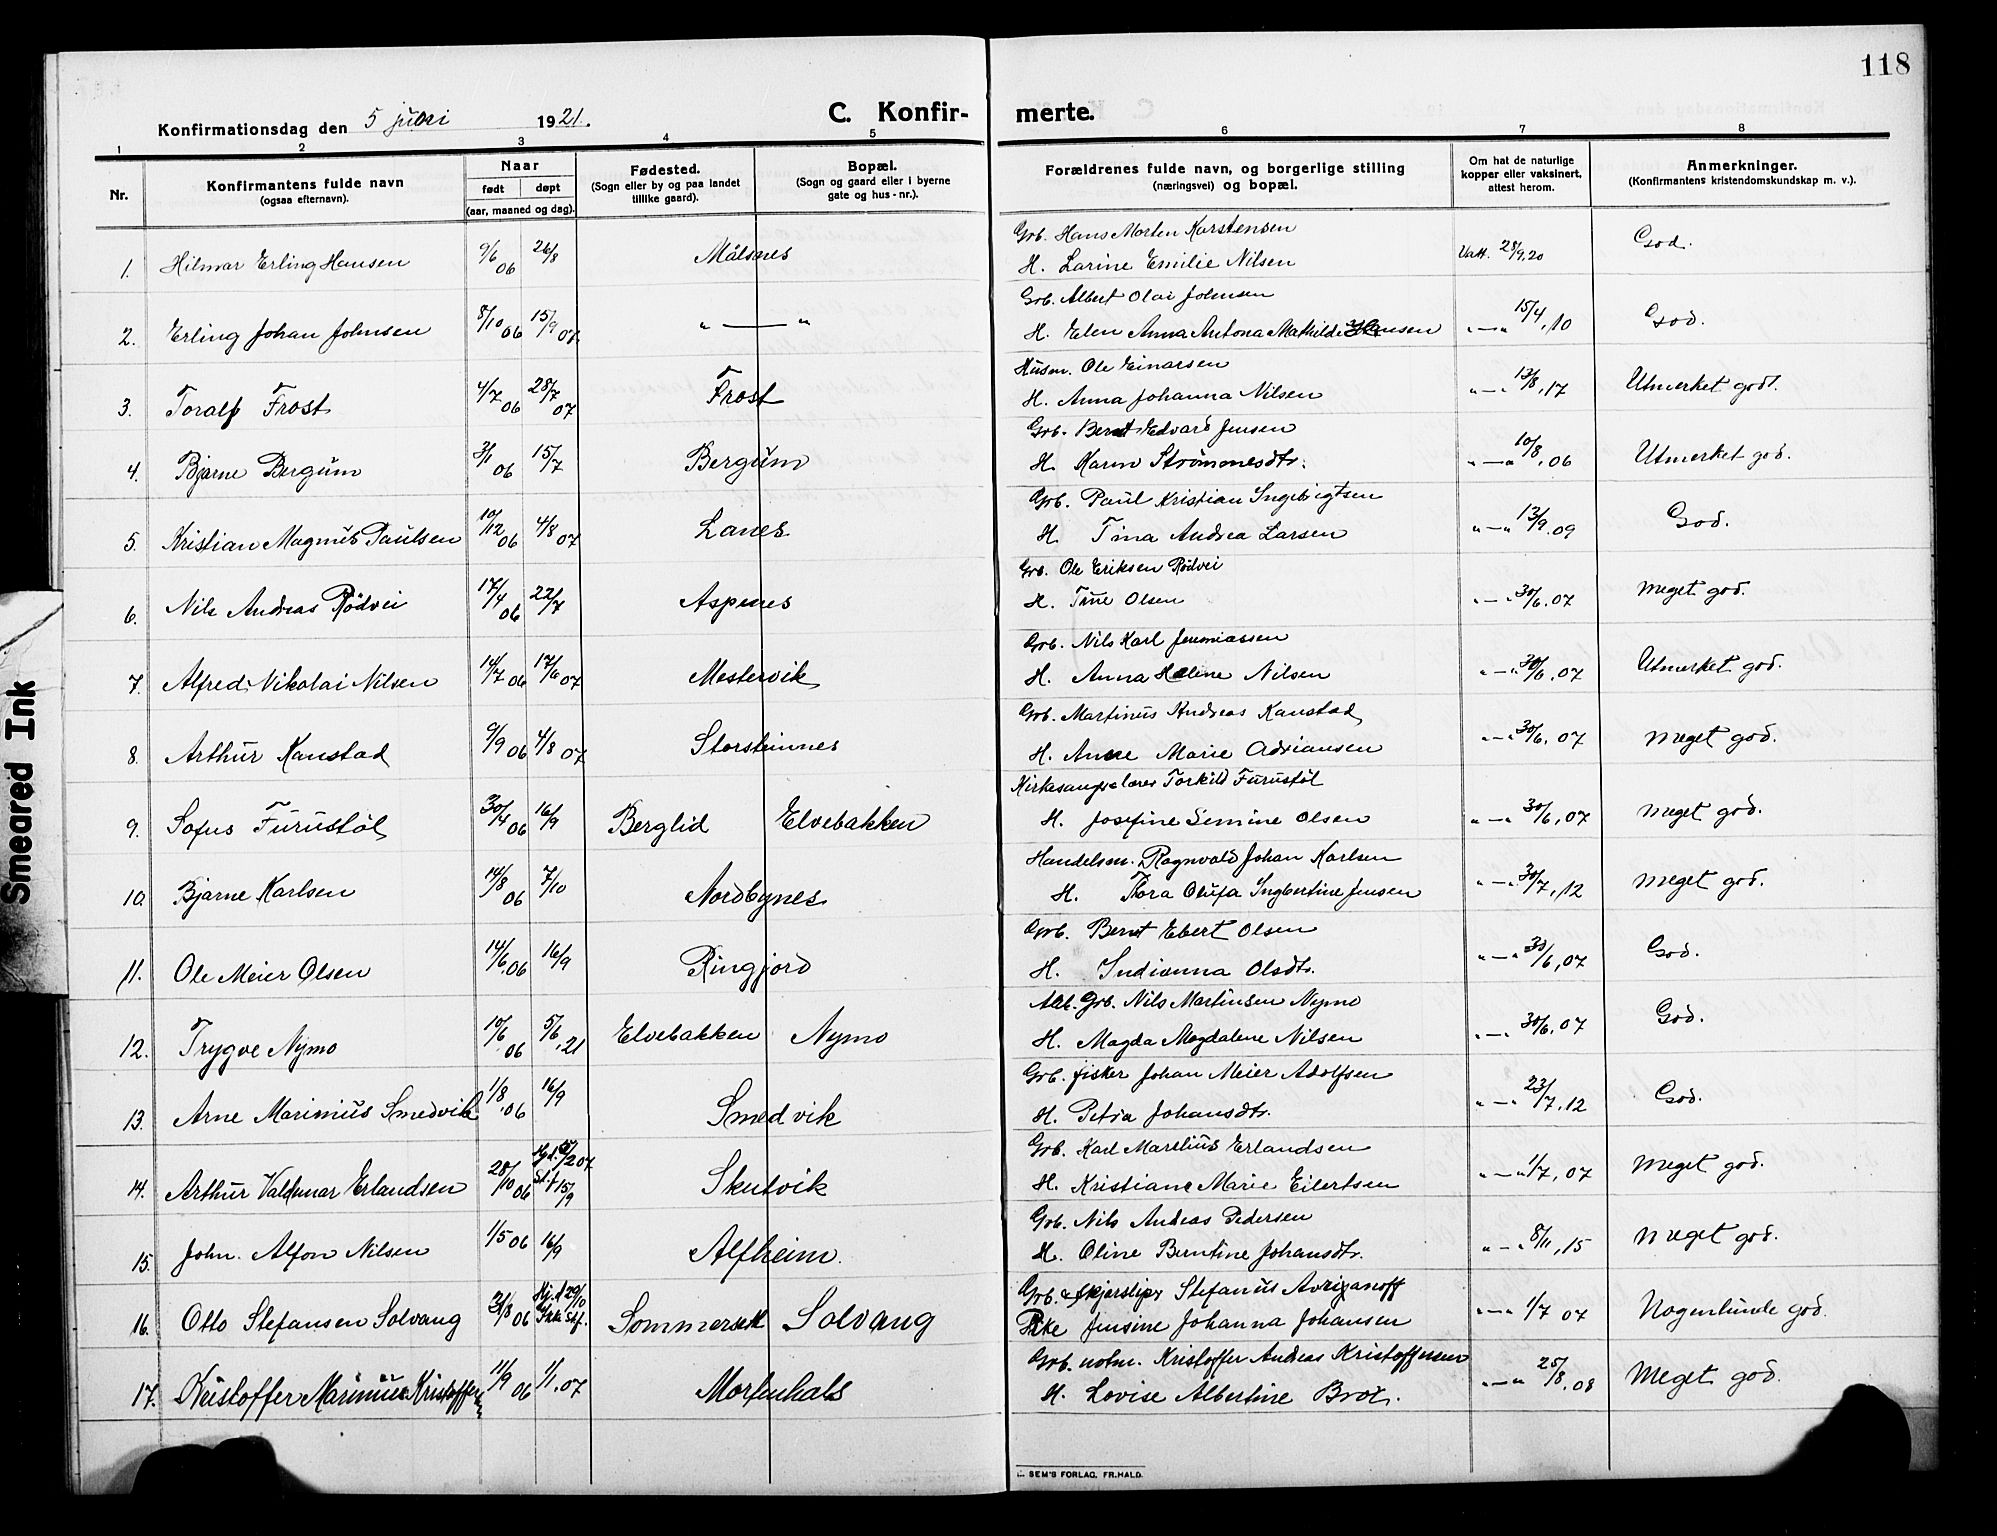 118
Konfirmationsdag den 5 juni 1921.
C. Konfirmerte.
1 2 3 4 5 6 7 8
Nr.
Konfirmantens fulde navn
(ogsaa efternavn).
Naar
født døpt
(aar, maaned og dag).
Fødested.
(Sogn eller by og paa landet
tillike gaard).
Bopæl.
(Sogn og gaard eller i byerne
gate og hus-nr.).
Forældrenes fulde navn, og borgerlige stilling
(næringsvei) og bopæl.
Om hat de naturlige
kopper eller vaksinert,
attest herom.
Anmerkninger.
(Konfirmantens kristendomskundskap m. v.).
Grb. Hans Morten Karstensen
1. Hilmar Erling Hansen 9/6 06 26/8 Målsnes H. Larine Emilie Nilsen Vatt. 28/9.20 God.
Grb. Albert Olai Johnsen
2. Erling Johan Johnsen 8/10 06 15/9 07 " — " H. Elen Anna Antona Mathilde Hansen " — " 15/4, 10 God.
Husm. Ole Einarsen
3. Toralf Frost 4/7 06 28/7 07 Frost H. Anna Johanna Nilsen " — " 13/8, 17 Utmerket godt.
Grb. Bernt Edvard Jensen
4. Bjarne Bergum 3/1 06 15/7 Bergum H. Karen Strømmesdtr. " — " 10/8, 06 Utmerket god.
Grb. Paul Kristian Ingebrigtsen
5. Kristian Magnus Paulsen 10/12 06 4/8 07 Lanes H. Tina Andrea Larsen " — " 13/9. 09 God.
Grb. Ole Eriksen Rödvei
6. Nils Andreas Rödvei 17/4 06 22/7 Aspenes H. Trine Olsen " — " 30/6. 07 Meget god.
Grb. Nils Karl Jeremiassen
7. Alfred Nikolai Nilsen 14/7 06 17/6 07 Mestervik H. Anna Helene Nilsen " — " 30/6. 07 Utmerket god.
Grb. Martinus Andreas Kanstad
8. Arthur Kanstad 9/9 06 4/8 07 Storsteinnes H. Anne Marie Adriansen " — " 30/6. 07 Meget god.
Kirkesanger & lærer Torkild Furustøl
9. Sofus Furustøl 30/4 06 16/9 Berglid Elvebakken H. Josefine Semine Olsen " — " 30/6, 07 Meget god.
Handelsm. Ragnvald Johan Karlsen
10. Bjarne Karlsen 14/8 06 7/10 Nordbynes H. Thora Olufa Ingbertine Jensen " — " 30/7, 12 Meget god.
Grb. Bernt Ebert Olsen
11. Ole Meier Olsen 14/6 06 16/9 Ringjord H. Indianna Olsdtr. " — " 30/6, 07 God.
Arb. Grb. Nils Martinsen Nymo
12. Trygve Nymo 10/6 06 5/6, 21 Elvebakken Nymo H. Magda Magdalene Nilsen " — " 30/6. 07 God.
Grb. fisker Johan Meier Adolfsen
13. Arne Marinius Smedvik 1/8 .06 16/9 Smedvik H. Petra Johansdtr. " — " 23/7, 12 God.
Grb. Karl Marelius Erlandsen
14. Arthur Valdemar Erlandsen 28/10 06 Hjd. /2 07 St.f 15/9 Skutvik H. Kristiane Marie Eilertsen " — " 1/7, 07 Meget god.
Grb. Nils Andreas Pedersen
15. John Alfon Nilsen 1/5 06 16/9 Alfheim. H. Oline Berntine Johansdtr. " — " 8/11, 15 Meget god.
Grb. & skjærsliper Stefanus Avrizanoff
16. Otto Stefansen Solvang /8 06 Hj.d 29/10 Ikke Stf. Sommerset Solvang Pike Jensine Johanna Johansen " — " 1/7 07 Nogenlunde god.
Grb. notm. Kristoffer Andreas Kristoffersen
17. Kristoffer Marinius Kristoffersen 11/9 06 1/1.07 Mortenhals H. Lovise Albertine Brox. " — " 25/8. 08 Meget god.
SEM'S FORLAG, FR.HALD.
Smeared Ink